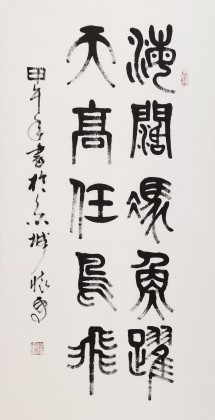 海闊馮魚躍
天高任鳥飛
甲午年書於京城